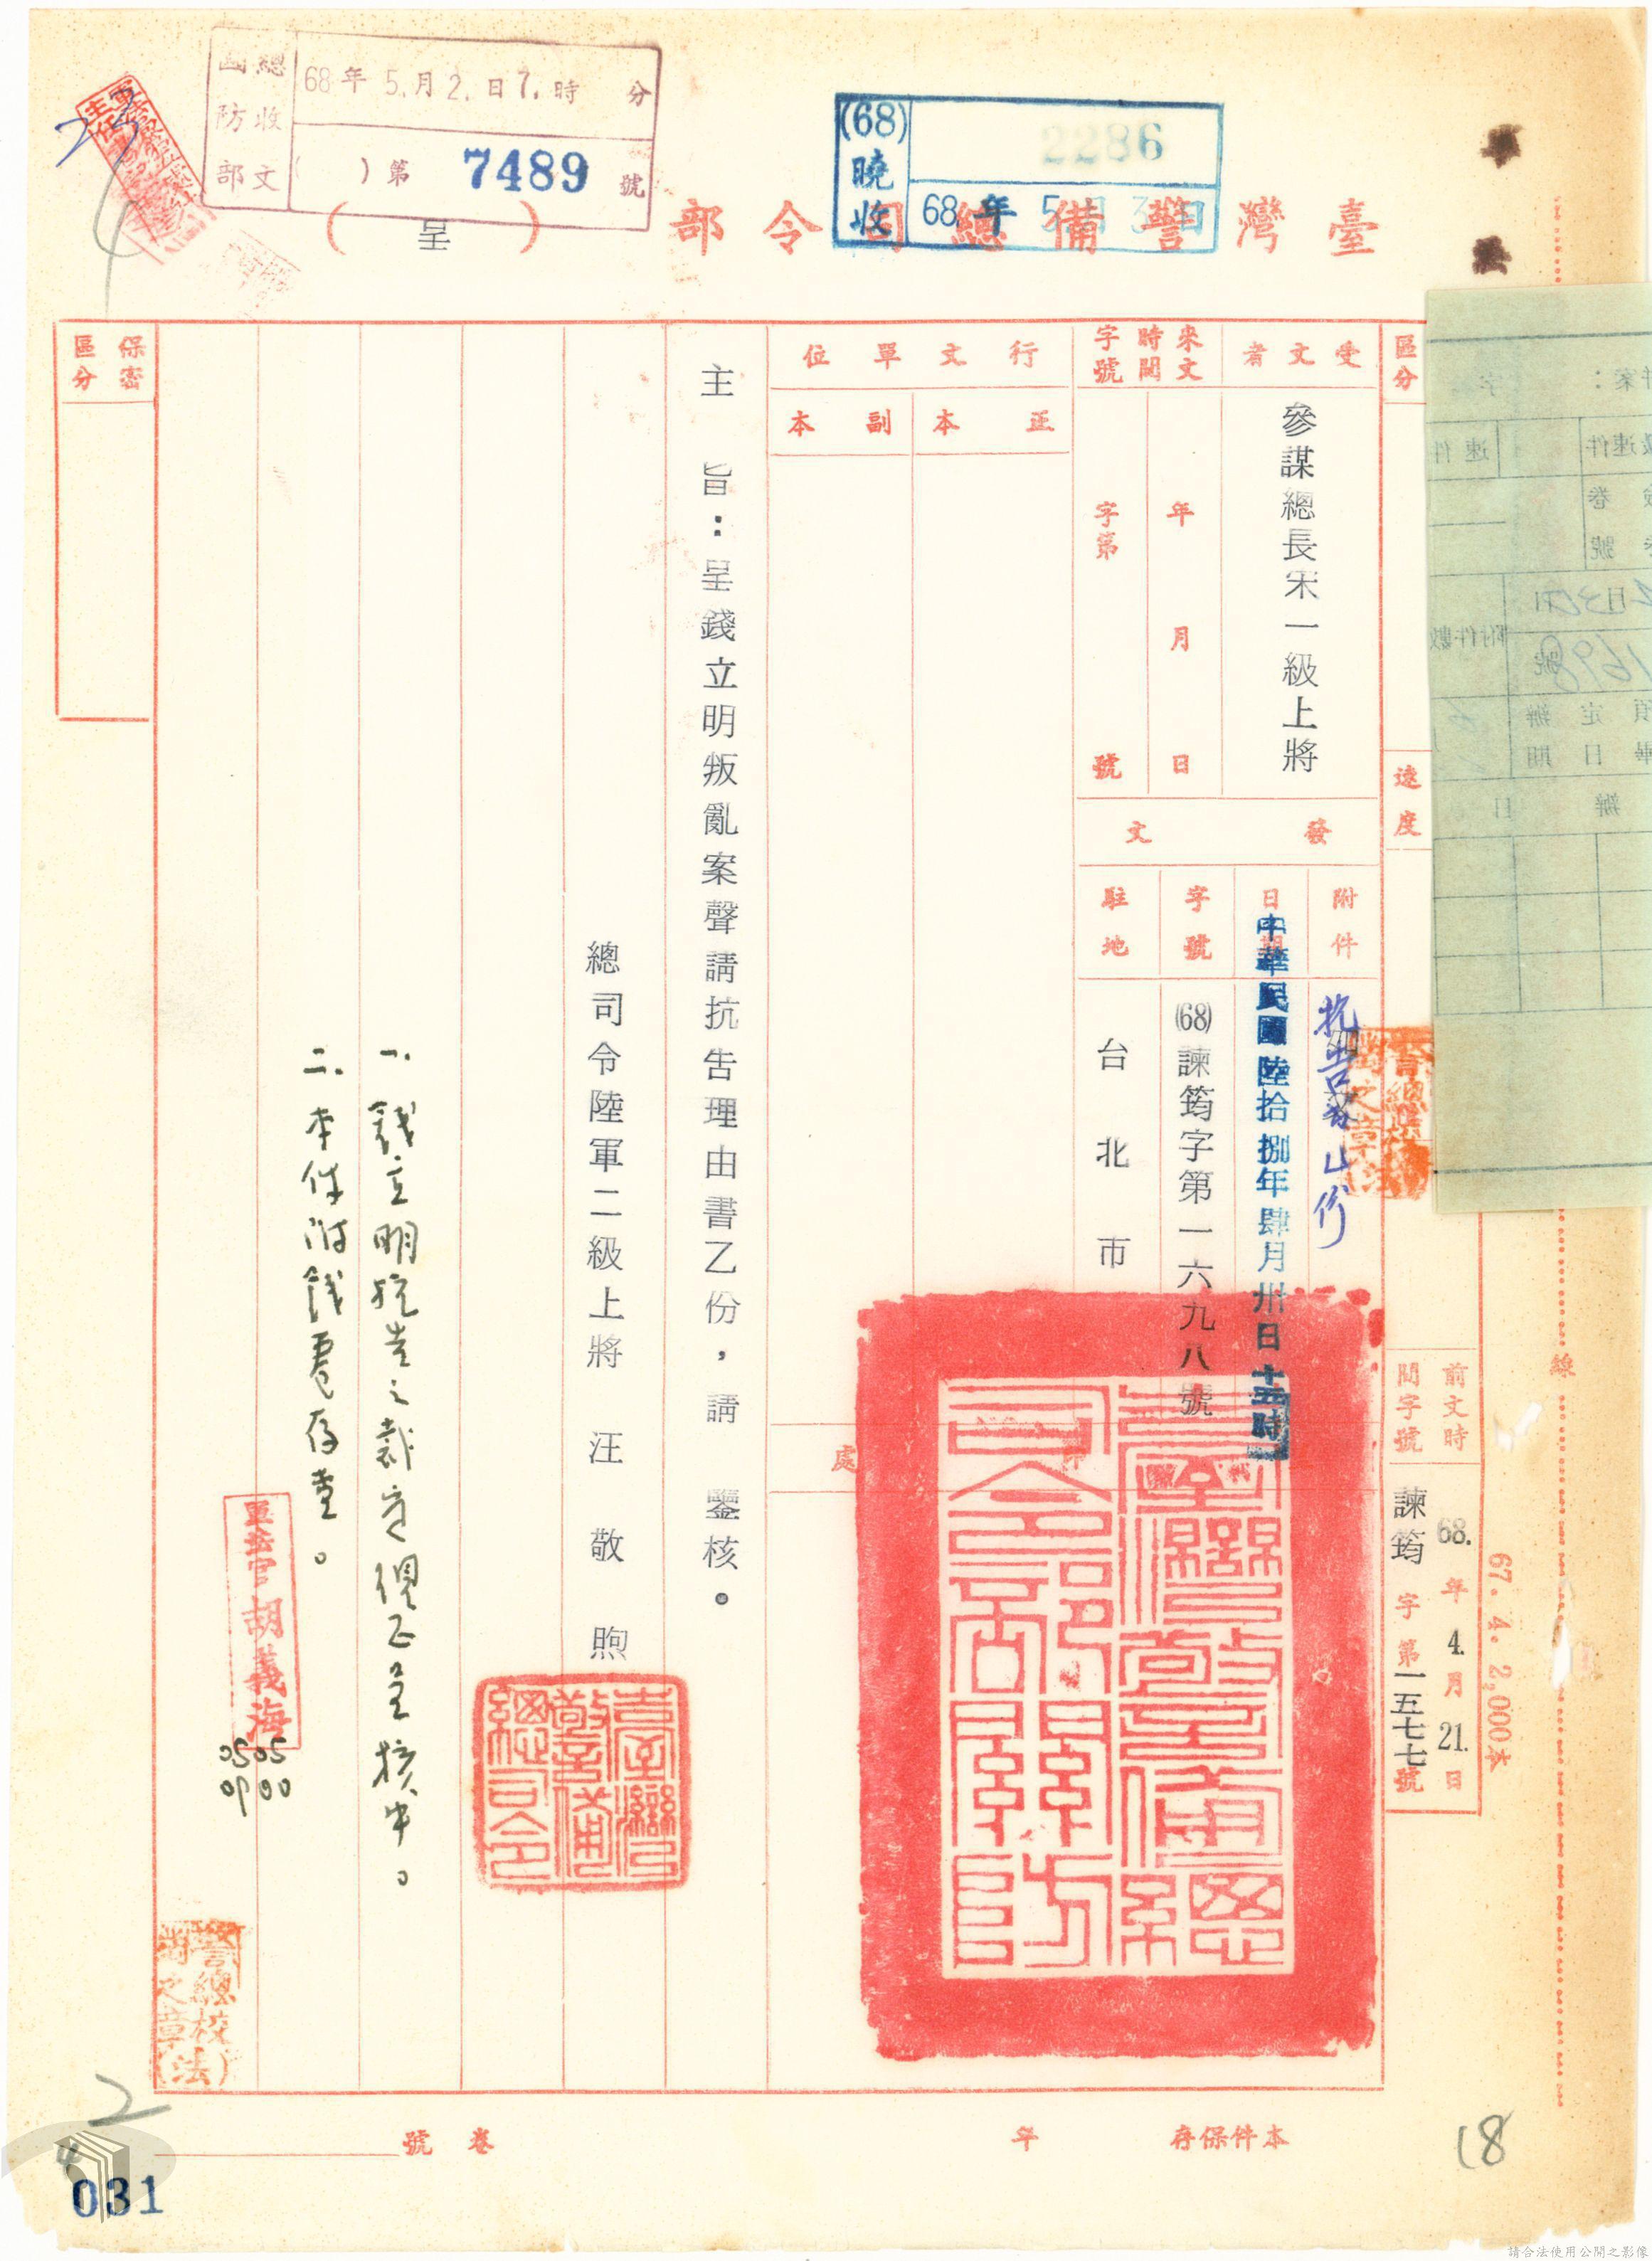 臺灣警備總司令部(呈)
國防部總收文
68年5月2日7時 分
( )第7489號
(68)曉收
2286
68年5月3日
區分
速度
前文時間字號
68.年4.月21.日
諫筠字第一五七七號
67. 4. 2,000本
線
受文者
參謀總長宋一級上將
來文時間字號
年 月 日
字第 號
發文
附件
抗告書乙份
日期
中華民國陸拾捌年肆月卅日十五時
字號
(68)諫筠字第一六九八號
駐地
台北市
行文單位
正本
副本
處
臺灣警備總司令部關防
主旨:呈錢立明叛亂案聲請抗告理由書乙份,請 鑒核。
總司令陸軍二級上將 汪敬煦
臺灣警備總司令
一、錢立明抗告之裁定偎正呈核中。
二、本件附錢卷存查。
軍法官胡義海
0505
0900
警總校(法)
之章
保密區分
本件保存 年
卷 號
18
2
4
031
請合法使用公開之影像